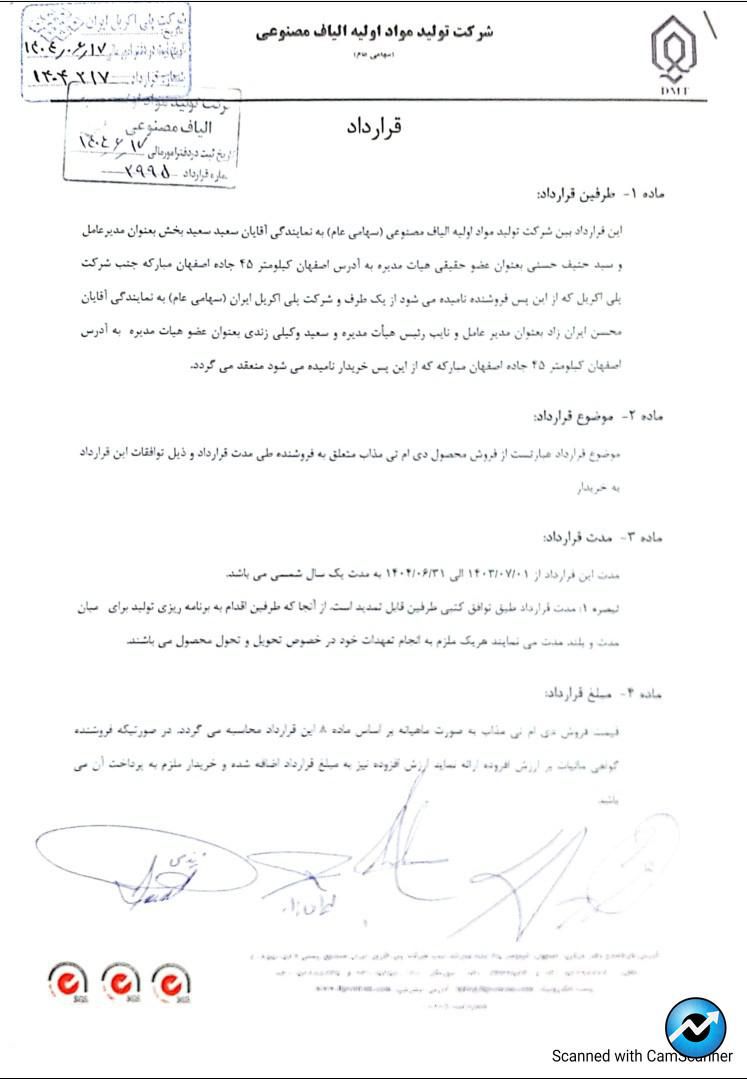 شرکت تولید مواد اولیه الیاف مصنوعی
(سهامی عام)
DMT
شرکت پلی اکریل ایران
۱۴۰۴/۰۶/۱۷
شماره قرارداد
الیاف مصنوعی
تاریخ ثبت دردفترامورمالی ۱۴۰۴/۶/۱۷
شماره قرارداد ۳۹۹۵
قرارداد
ماده ۱- طرفین قرارداد:
این قرارداد بین شرکت تولید مواد اولیه الیاف مصنوعی (سهامی عام) به نمایندگی آقایان سعید سعید بخش بعنوان مدیرعامل
و سید حنیف حسنی بعنوان عضو حقیقی هیات مدیره به آدرس اصفهان کیلومتر ۴۵ جاده اصفهان مبارکه جنب شرکت
پلی اکریل که از این پس فروشنده نامیده می شود از یک طرف و شرکت پلی اکریل ایران (سهامی عام) به نمایندگی آقایان
محسن ایران زاد بعنوان مدیر عامل و نایب رئیس هیأت مدیره و سعید وکیلی زندی بعنوان عضو هیات مدیره به آدرس
اصفهان کیلومتر ۴۵ جاده اصفهان مبارکه که از این پس خریدار نامیده می شود منعقد می گردد.
ماده ۲- موضوع قرارداد:
موضوع قرارداد عبارتست از فروش محصول دی ام تی مذاب متعلق به فروشنده طی مدت قرارداد و ذیل توافقات این قرارداد
به خریدار
ماده ۳- مدت قرارداد:
مدت این قرارداد از ۱۴۰۳/۰۷/۰۱ الی ۱۴۰۴/۰۶/۳۱ به مدت یک سال شمسی می باشد.
تبصره ۱: مدت قرارداد طبق توافق کتبی طرفین قابل تمدید است. از آنجا که طرفین اقدام به برنامه ریزی تولید برای میان
مدت و بلند مدت می نمایند هریک ملزم به انجام تعهدات خود در خصوص تحویل و تحول محصول می باشند.
ماده ۴- مبلغ قرارداد:
قیمت فروش دی ام تی مذاب به صورت ماهیانه بر اساس ماده ۸ این قرارداد محاسبه می گردد. در صورتیکه فروشنده
گواهی مالیات بر ارزش افزوده ارائه نماید ارزش افزوده نیز به مبلغ قرارداد اضافه شده و خریدار ملزم به پرداخت آن می
باشد.
زندی
SGS SGS SGS
Scanned with CamScanner